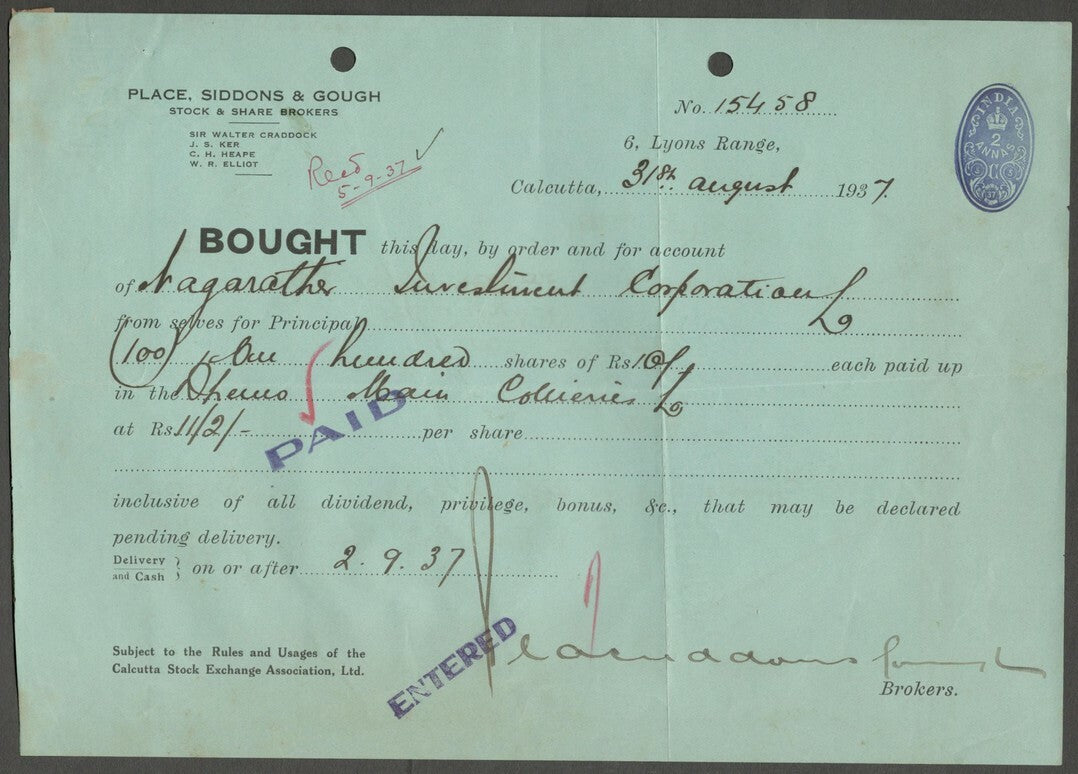 PLACE, SIDDONS & GOUGH
STOCK & SHARE BROKERS
SIR WALTER CRADDOCK
J. S. KER
C. H. HEAPE
W. R. ELLIOT
Recd
5-9-37
No. 15458
INDIA
2
ANNAS
6, Lyons Range,
Calcutta, 31st august 1937.
BOUGHT this day, by order and for account
of Nagarather Investment Corporation Ld
from selves for Principal
(100) One hundred shares of Rs 10/- each paid up
in the Dhemo Main Collieries Ld
at Rs 11/2/- per share
PAID
inclusive of all dividend, privilege, bonus, &c., that may be declared
pending delivery.
Delivery and Cash } on or after 2.9.37
ENTERED
Subject to the Rules and Usages of the
Calcutta Stock Exchange Association, Ltd.
Brokers.